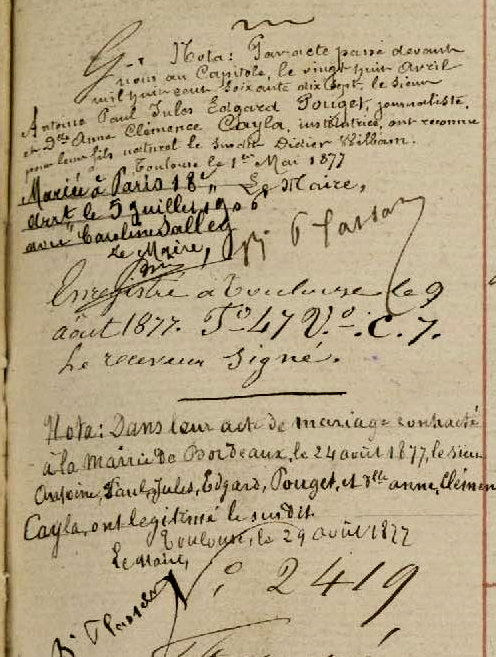 Nota: Par acte passé devant
nous au Capitole, le vingt huit Avril
mil huit cent soixante dix sept, le sieur
Antoine Paul Jules Edgard Pouget, journaliste,
et Dlle Anne Clémence Cayla, institutrice, ont reconnu
pour leur fils naturel le susdit Didier
Toulouse le 1er Mai 1877
Le Maire,
Marié à Paris 18e
arrt le 5 juillet 1906
avec Caroline
Le Maire,
Enregistré à Toulouse le 9
août 1877. Fo 47 Vo. C. 7.
Le receveur Signé.
Nota: Dans leur acte de mariage contracté
à la Mairie de Bordeaux, le 24 août 1877, le sieur
Antoine, Paul, Jules, Edgard, Pouget, et Dlle Anne, Clémen
Cayla, ont légitimé le susdit.
Toulouse, le 29 août 1877
Le Maire,
2419